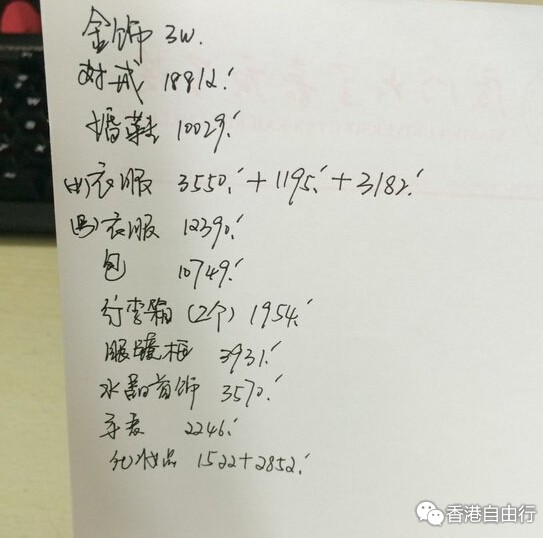 金饰 3W.
对戒 18812.
婚鞋 10029.
(女)衣服 3550.+1195.+3182.
(男)衣服 12390.
包 10749.
行李箱(2个) 1954.
眼镜框 3931.
水晶首饰 3570.
手表 2246.
化妆品 1522+2852.
香港自由行